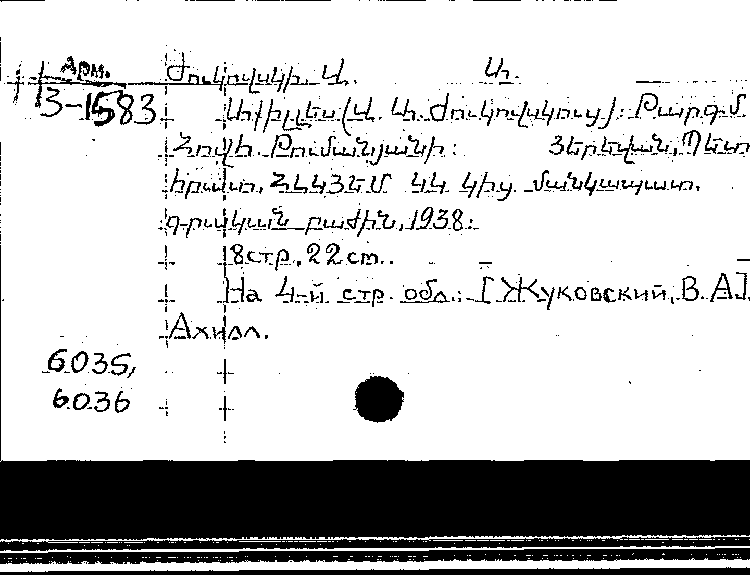 Арм.
3-1583
Ժուկովսկի Վ. Ա.
Աքիլլես (Վ. Ա. Ժուկովսկուց): Բարգմ
Հովհ. Թումանյանի: Յերեվան, Պետ
հրատ. ՀԼԿՅԵՄ ԿԿ կից մանկապատ.
գրական բաժին, 1938:
8 стр. 22 см.
На 4-й стр. обл.: [Жуковский, В. А].
Ахилл.
6035,
6036